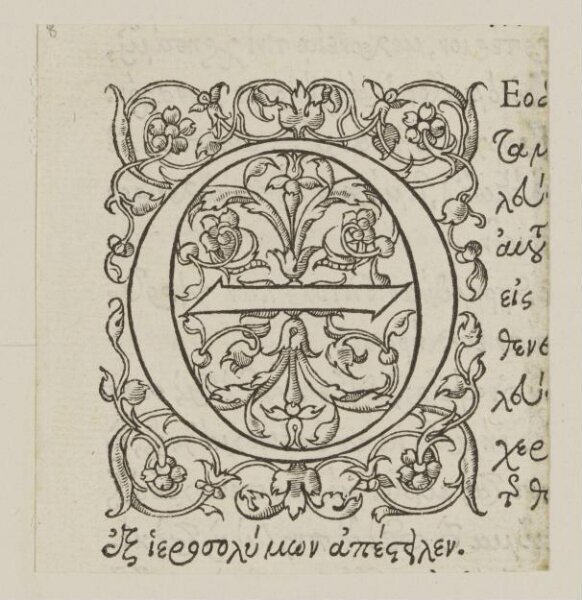 8
Θ Εοδ
τα μ
λου
αὐτ
εἰς
θενε
λου
χερ
ἐξ ἱεροσολύμων ἀπέστειλεν.